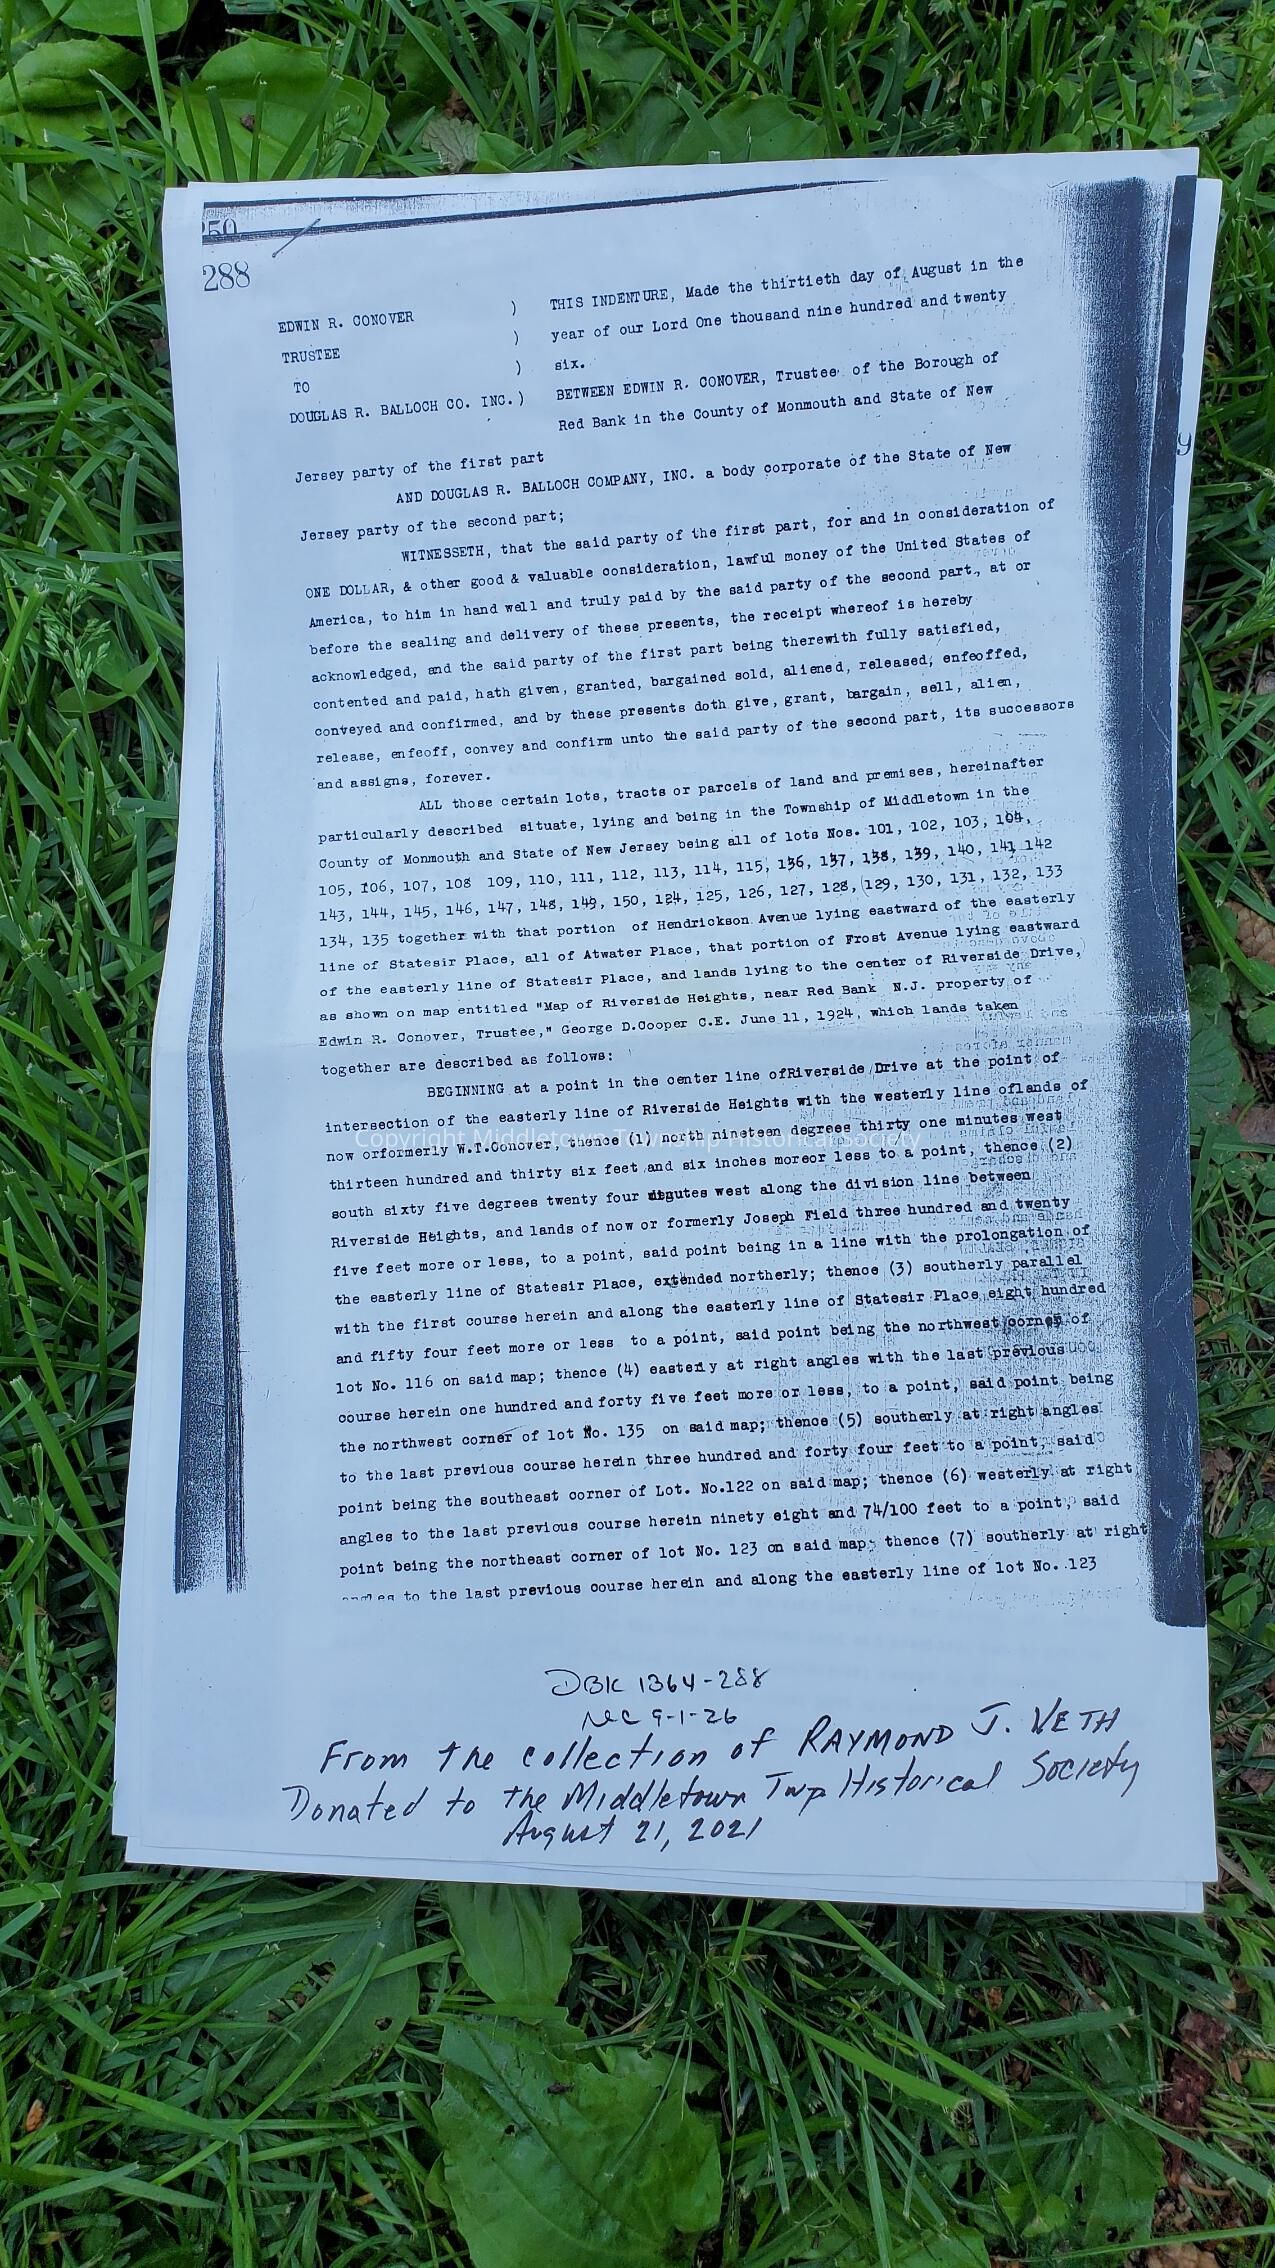 288
EDWIN R. CONOVER )
TRUSTEE )
TO )
DOUGLAS R. BALLOCH CO. INC.)
THIS INDENTURE, Made the thirtieth day of August in the
year of our Lord One thousand nine hundred and twenty
six.
BETWEEN EDWIN R. CONOVER, Trustee of the Borough of
Red Bank in the County of Monmouth and State of New
Jersey party of the first part
AND DOUGLAS R. BALLOCH COMPANY, INC. a body corporate of the State of New
Jersey party of the second part;
WITNESSETH, that the said party of the first part, for and in consideration of
ONE DOLLAR, & other good & valuable consideration, lawful money of the United States of
America, to him in hand well and truly paid by the said party of the second part, at or
before the sealing and delivery of these presents, the receipt whereof is hereby
acknowledged, and the said party of the first part being therewith fully satisfied,
contented and paid, hath given, granted, bargained sold, aliened, released, enfeoffed,
conveyed and confirmed, and by these presents doth give, grant, bargain, sell, alien,
release, enfeoff, convey and confirm unto the said party of the second part, its successors
and assigns, forever.
ALL those certain lots, tracts or parcels of land and premises, hereinafter
particularly described situate, lying and being in the Township of Middletown in the
County of Monmouth and State of New Jersey being all of lots Nos. 101, 102, 103, 104,
105, 106, 107, 108 109, 110, 111, 112, 113, 114, 115, 136, 137, 138, 139, 140, 141 142
143, 144, 145, 146, 147, 148, 149, 150, 124, 125, 126, 127, 128, 129, 130, 131, 132, 133
134, 135 together with that portion of Hendrickson Avenue lying eastward of the easterly
line of Statesir Place, all of Atwater Place, that portion of Frost Avenue lying eastward
of the easterly line of Statesir Place, and lands lying to the center of Riverside Drive,
as shown on map entitled "Map of Riverside Heights, near Red Bank N.J. property of
Edwin R. Conover, Trustee," George D.Cooper C.E. June 11, 1924, which lands taken
together are described as follows:
BEGINNING at a point in the center line ofRiverside Drive at the point of
intersection of the easterly line of Riverside Heights with the westerly line oflands of
now orformerly W.T.Conover, thence (1) north nineteen degrees thirty one minutes west
thirteen hundred and thirty six feet and six inches moreor less to a point, thence (2)
south sixty five degrees twenty four west along the division line between
Riverside Heights, and lands of now or formerly Joseph Field three hundred and twenty
five feet more or less, to a point, said point being in a line with the prolongation of
the easterly line of Statesir Place, extended northerly; thence (3) southerly parallel
with the first course herein and along the easterly line of Statesir Place eight hundred
and fifty four feet more or less to a point, said point being the northwest corner of
lot No. 116 on said map; thence (4) easterly at right angles with the last previous
course herein one hundred and forty five feet more or less, to a point, said point being
the northwest corner of lot No. 135 on said map; thence (5) southerly at right angles
to the last previous course herein three hundred and forty four feet to a point, said
point being the southeast corner of Lot. No.122 on said map; thence (6) westerly at right
angles to the last previous course herein ninety eight and 74/100 feet to a point, said
point being the northeast corner of lot No. 123 on said map; thence (7) southerly at right
angles to the last previous course herein and along the easterly line of lot No. 123
DBK 1364-288
9-1-26
From the collection of RAYMOND J. VETH
Donated to the Middletown Twp Historical Society
August 21, 2021
Copyright Middletown Township Historical Society